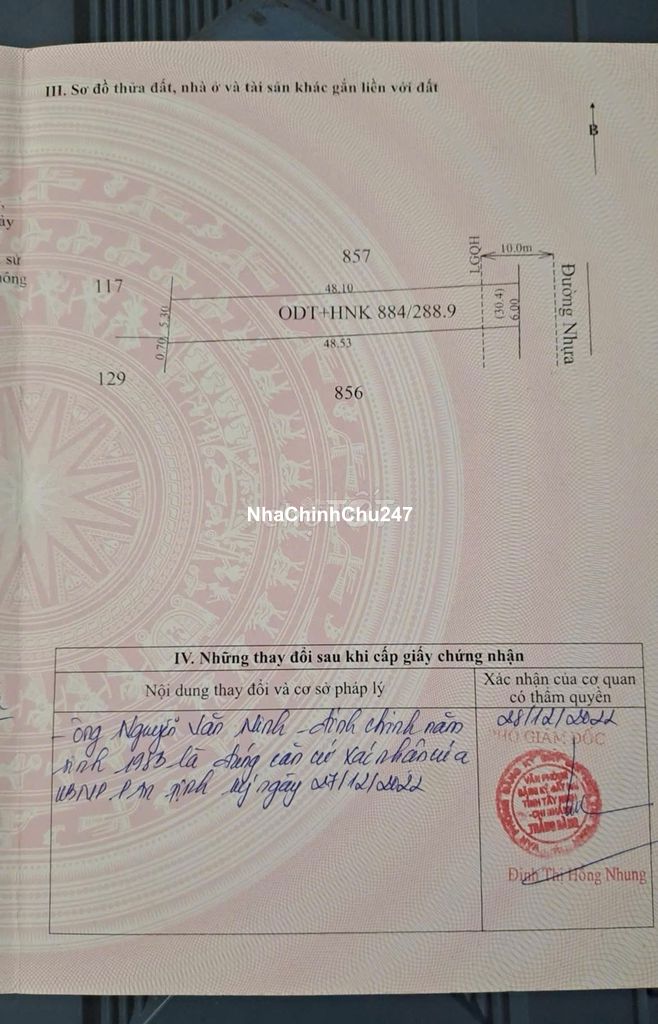 III. Sơ đồ thửa đất, nhà ở và tài sản khác gắn liền với đất
B
ảy
sử
nông
857
LGQH
10.0m
117
48.10
ODT+HNK 884/288.9
(30.4)
6.00
Đường Nhựa
5.30
0.70
48.53
129
856
NhaChinhChu247
IV. Những thay đổi sau khi cấp giấy chứng nhận
Nội dung thay đổi và cơ sở pháp lý
Xác nhận của cơ quan
có thẩm quyền
- Ông Nguyễn Văn Ninh - đính chính năm
sinh 1983 là đúng căn cứ xác nhận của
UBND P. An Tịnh ký ngày 27/12/2022
28/12/2022
PHÓ GIÁM ĐỐC
VĂN PHÒNG
ĐĂNG KÝ ĐẤT ĐAI
TỈNH TÂY NINH
CHI NHÁNH
TRẢNG BÀNG
Đinh Thị Hồng Nhung